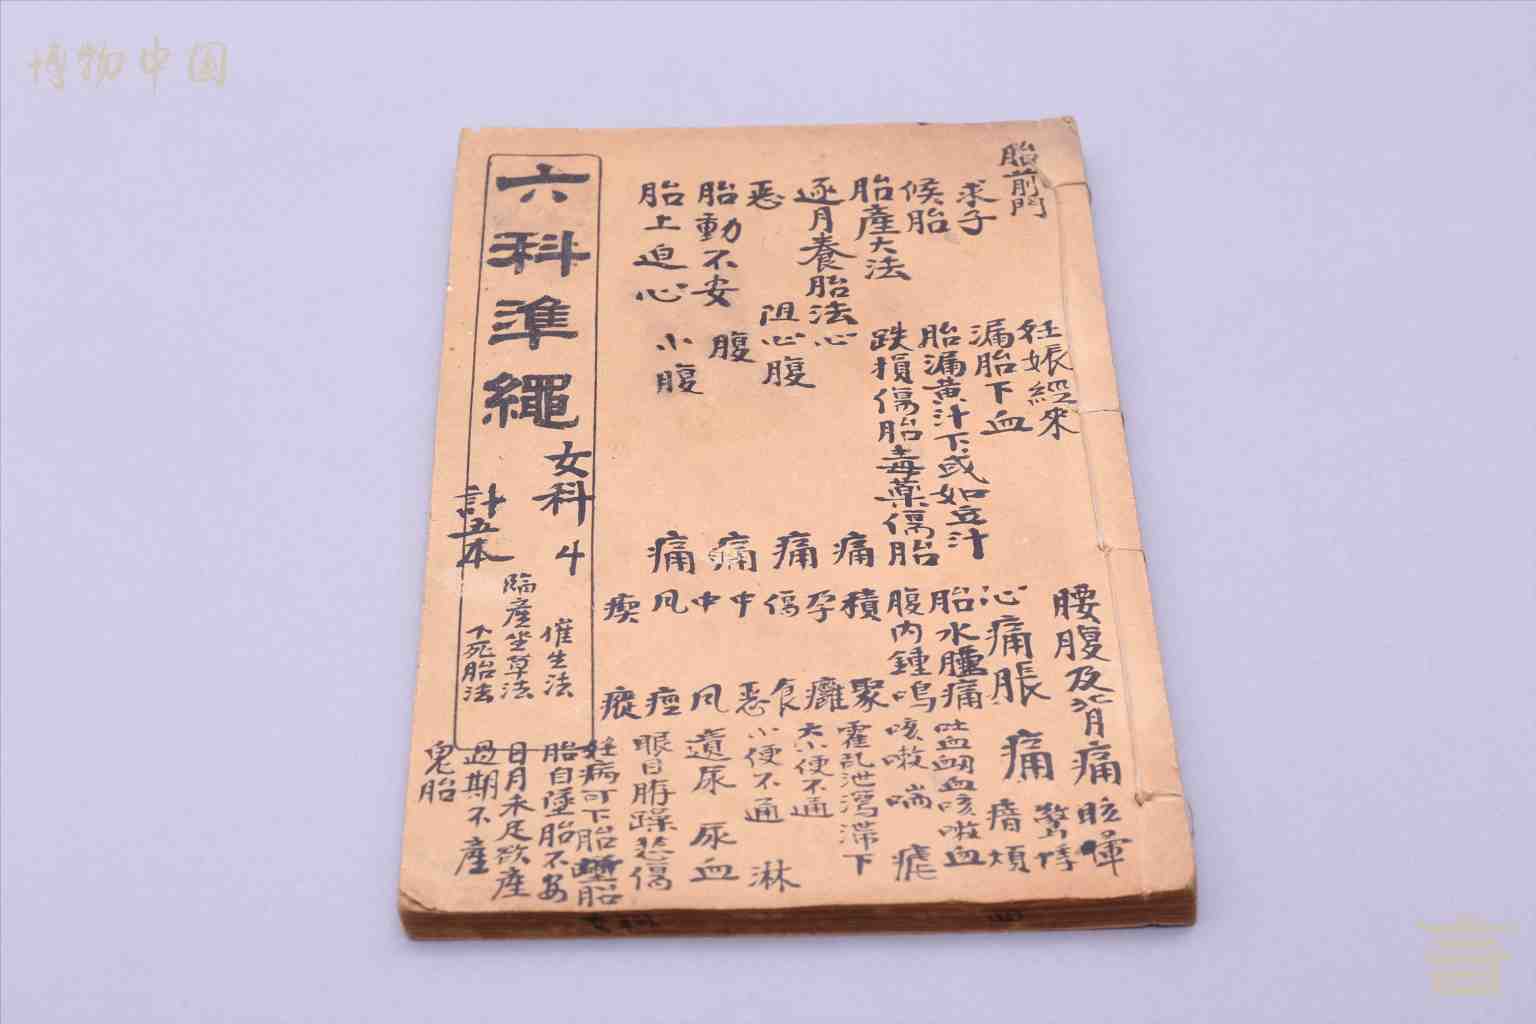 博物中国
胎前門
求子
候胎
胎產大法
逐月養胎法
惡阻
胎動不安
胎上迫心
妊娠經來
漏胎下血
胎漏黄汁下或如豆汁
跌損傷胎毒藥傷胎
心痛
心腹痛
腹痛
小腹痛
腰腹及背痛
心痛脹痛
胎水腫痛
腹内鍾鳴
積聚
孕癰
傷食
中惡
中風
風痙
瘈瘲
眩暈
驚悸
瘖煩
吐血衄血咳嗽血
咳嗽喘 瘧
霍乱泄瀉滯下
大小便不通
小便不通 淋
遺尿 尿血
眼目 躁悲傷
妊病可下胎 胎
胎自墜胎不安
日月未足欲產
過期不產
鬼胎
六科準繩
女科 4
計五本
催生法
臨產坐草法
下死胎法